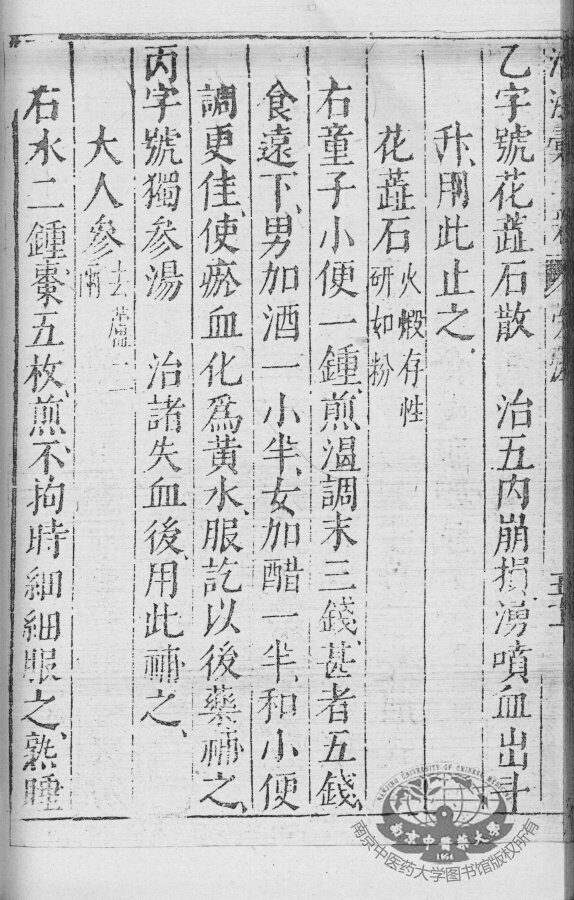 乙字號花蕋石散 治五内崩損湧噴血出斗
升用此止之
花蕋石火煅存性研如粉
右童子小便一鍾煎溫調末三錢甚者五錢
食遠下男加酒一小半女加醋一半和小便
調更佳使瘀血化爲黃水服訖以後藥補之
丙字號獨參湯 治諸失血後用此補之
大人參去蘆二兩
右水二鍾棗五枚煎不拘時細細服之熟睡
南京中醫藥大學
1954
NANJING UNIVERSITY OF CHINESE MEDICINE
南京中医药大学图书馆版权所有